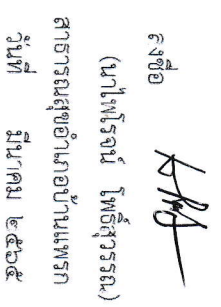 ลงชื่อ
(นายไพโรจน์ โพธิ์สุวรรณ)
สาธารณสุขอำเภอบ้านแพรก
วันที่ มีนาคม ๒๕๖๕